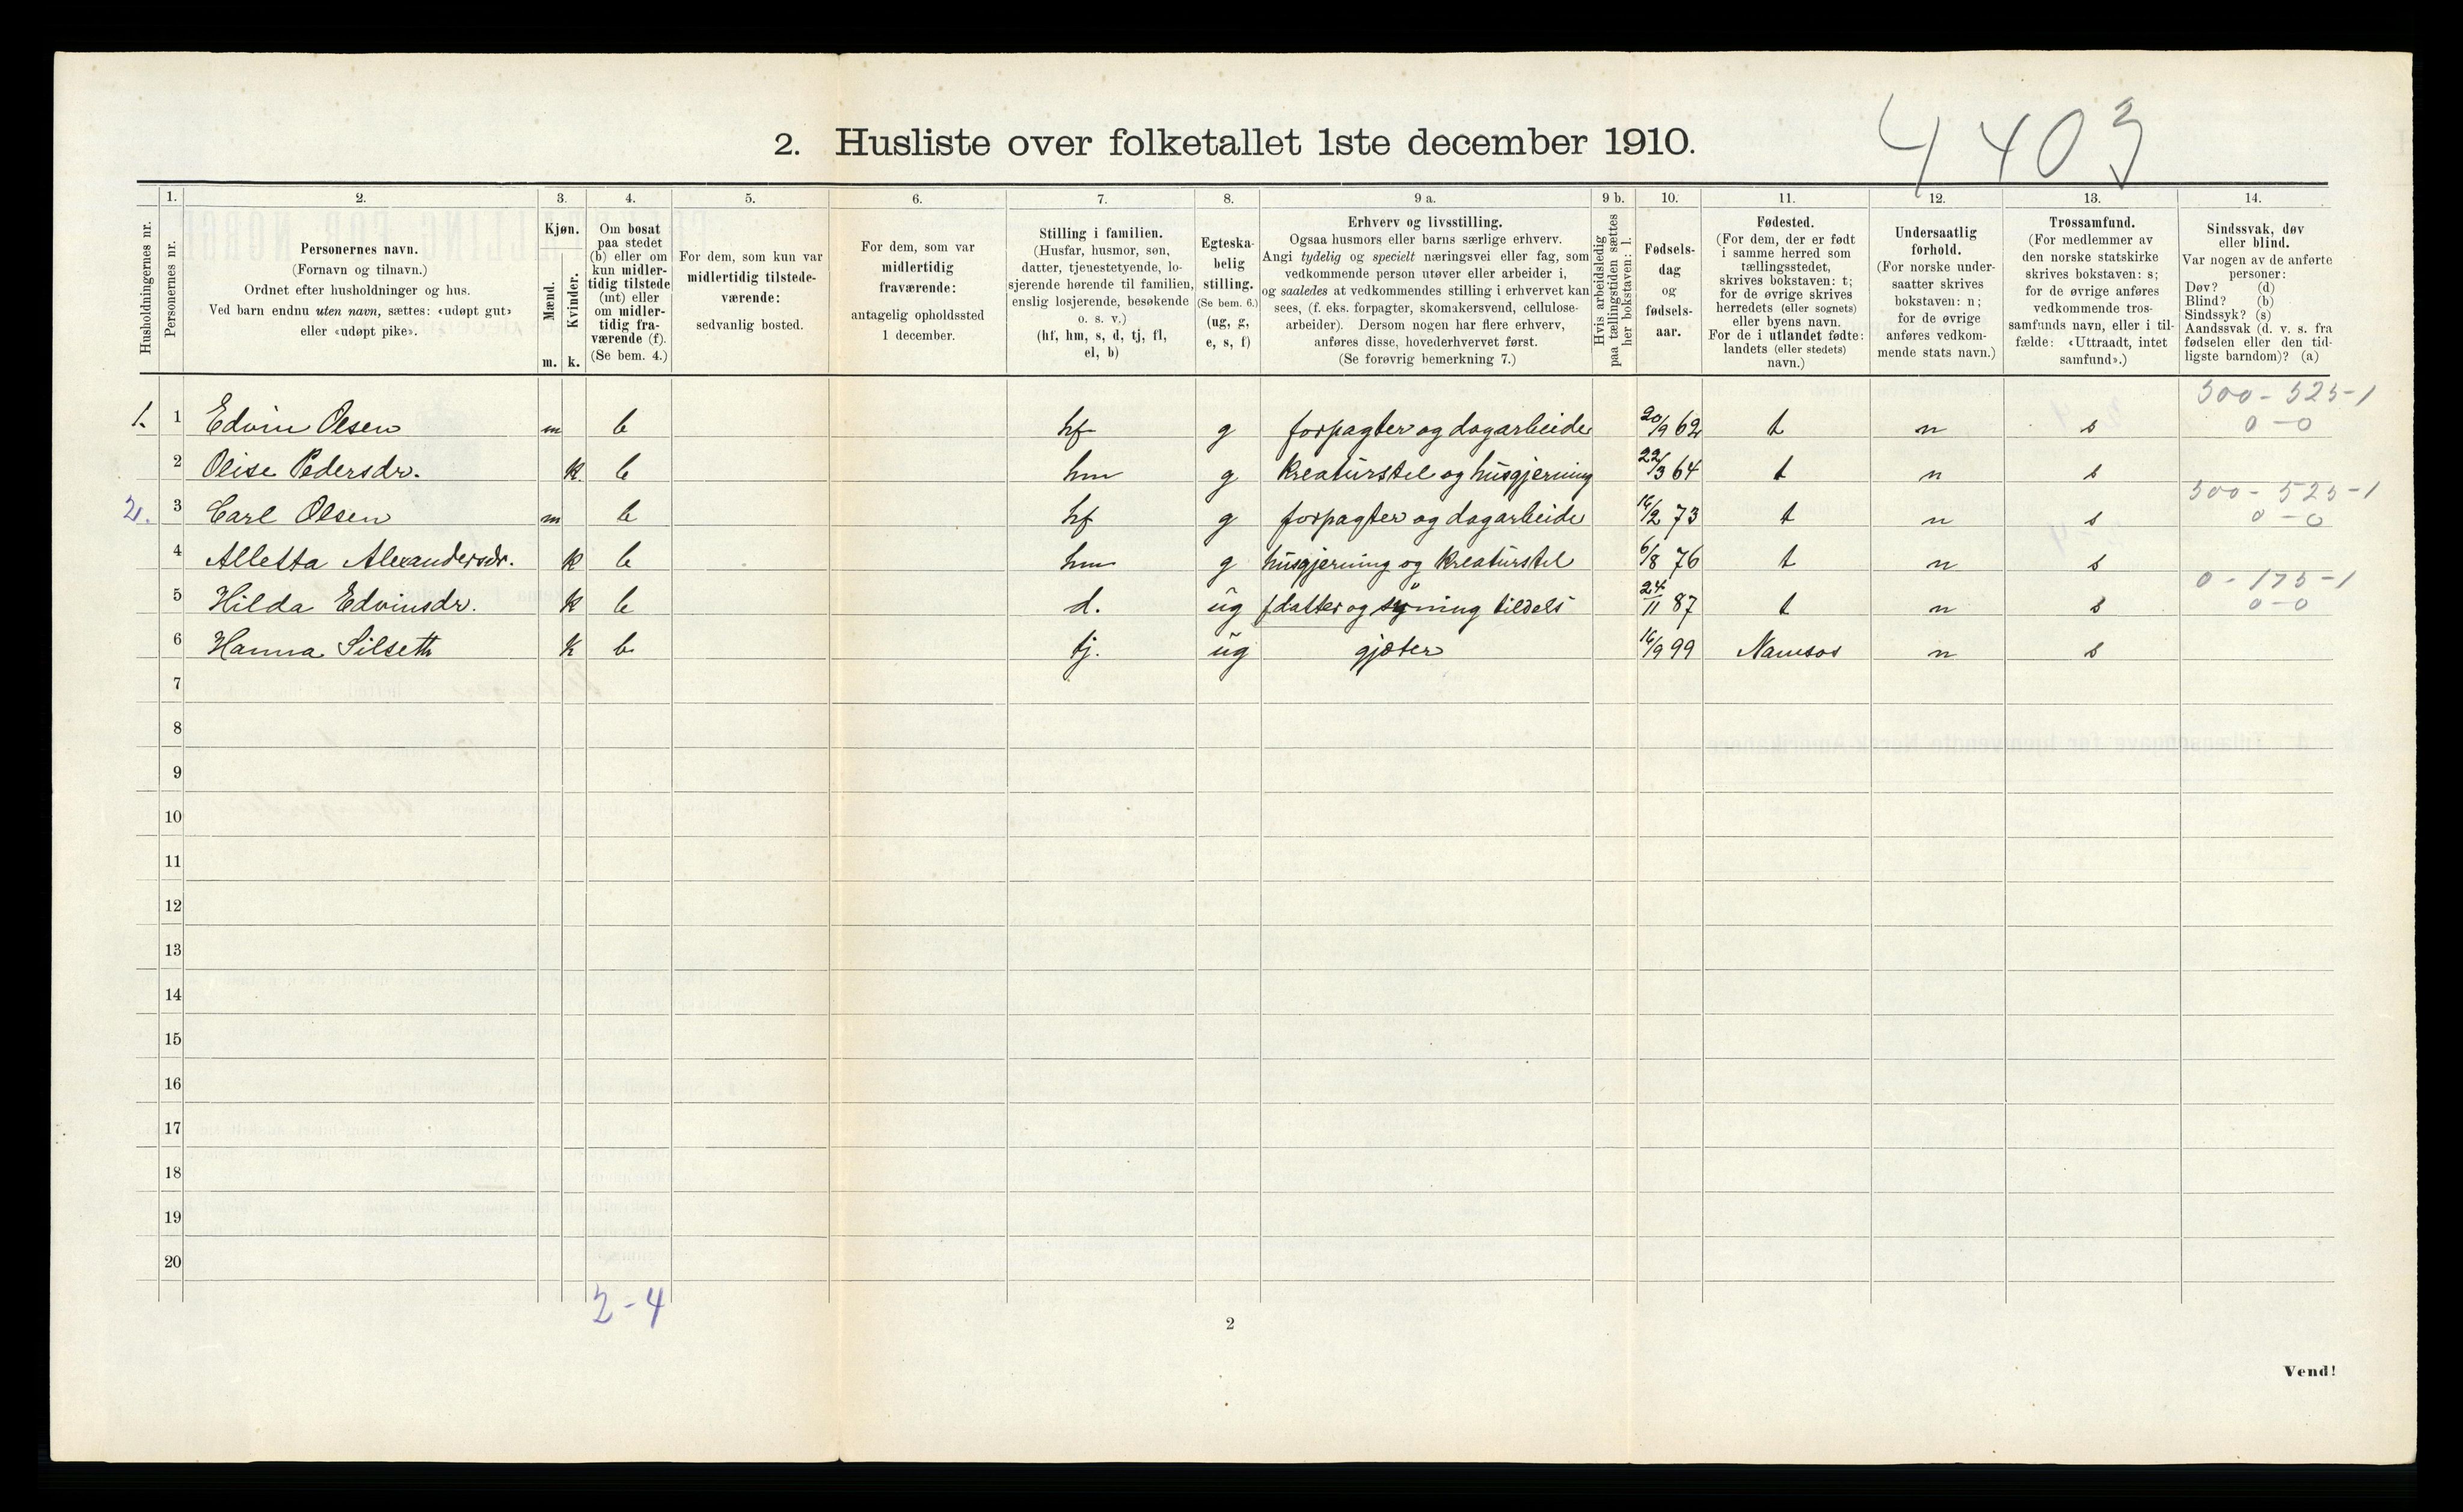 4403
2. Husliste over folketallet 1ste december 1910.
Husholdningernes nr.
1.
Personernes nr.
2.
Personernes navn.
(Fornavn og tilnavn.)
Ordnet efter husholdninger og hus.
Ved barn endnu uten navn, sættes: «udøpt gut»
eller «udøpt pike».
3.
Kjøn.
Mænd.
Kvinder.
m. k.
4.
Om bosat
paa stedet
(b) eller om
kun midler-
tidig tilstede
(mt) eller
om midler-
tidig fra-
værende (f).
(Se bem. 4.)
5.
For dem, som kun var
midlertidig tilstede-
værende:
sedvanlig bosted.
6.
For dem, som var
midlertidig
fraværende:
antagelig opholdssted
1 december.
7.
Stilling i familien.
(Husfar, husmor, søn,
datter, tjenestetyende, lo-
sjerende hørende til familien,
enslig losjerende, besøkende
o. s. v.)
(hf, hm, s, d, tj, fl,
el, b)
8.
Egteska-
belig
stilling.
(Se bem. 6.)
(ug, g,
e, s, f)
9 a.
Erhverv og livsstilling.
Ogsaa husmors eller barns særlige erhverv.
Angi tydelig og specielt næringsvei eller fag, som
vedkommende person utøver eller arbeider i,
og saaledes at vedkommendes stilling i erhvervet kan
sees, (f. eks. forpagter, skomakersvend, cellulose-
arbeider). Dersom nogen har flere erhverv,
anføres disse, hovederhvervet først.
(Se forøvrig bemerkning 7.)
9 b.
Hvis arbeidsledig
paa tællingstiden sættes
her bokstaven: l.
10.
Fødsels-
dag
og
fødsels-
aar.
11.
Fødested.
(For dem, der er født
i samme herred som
tællingsstedet,
skrives bokstaven: t;
for de øvrige skrives
herredets (eller sognets)
eller byens navn.
For de i utlandet fødte:
landets (eller stedets)
navn.)
12.
Undersaatlig
forhold.
(For norske under-
saatter skrives
bokstaven: n;
for de øvrige
anføres vedkom-
mende stats navn.)
13.
Trossamfund.
(For medlemmer av
den norske statskirke
skrives bokstaven: s;
for de øvrige anføres
vedkommende tros-
samfunds navn, eller i til-
fælde: «Uttraadt, intet
samfund».)
14.
Sindssvak, døv
eller blind.
Var nogen av de anførte
personer:
Døv? (d)
Blind? (b)
Sindssyk? (s)
Aandssvak (d. v. s. fra
fødselen eller den tid-
ligste barndom)? (a)
500-525-1
1. 1 Edvin Olsen m b hf g forpagter og dagarbeider 20/9 62 t n s 0-0
2 Olise Pedersdr. k. b hm g kreaturstel og husgjerning 22/3 64 t n s
500-525-1
2. 3 Carl Olsen m b hf g forpagter og dagarbeider 16/2 73 t n s 0-0
4 Alletta Alexandersdr. k b hm g husgjerning og kreaturstel 6/8 76 t n s
0-175-1
5 Hilda Edvinsdr. k b d. ug datter og syning tildels 24/11 87 t n s 0-0
6 Hanna Silseth k b tj. ug gjæter 16/9 99 Namsos n s
7
8
9
10
11
12
13
14
15
16
17
18
19
20
2-4
2
Vend!